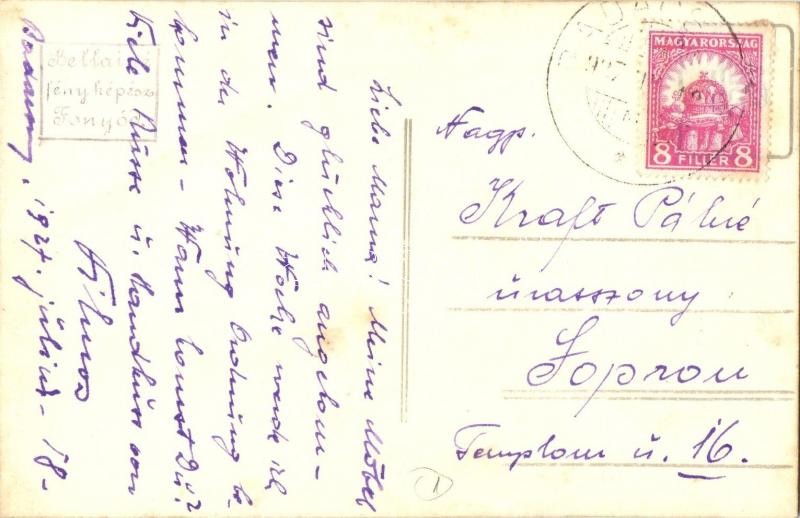 Liebe Mama! Meine Möbel
sind glücklich angekom-
men. Diese Woche werde ich
in der Wohnung Ordnung be-
kommen - Wann kommst Du?
Viele Küsse u. Handkuss von
Vilmos
Badacsony. 1927. július - 18 -
Bellai
fényképész
Fonyód
MAGYARORSZÁG
8 FILLÉR 8
Nagys.
Kraft Pálné
úrasszony
Sopron
Templom u. 16.
1